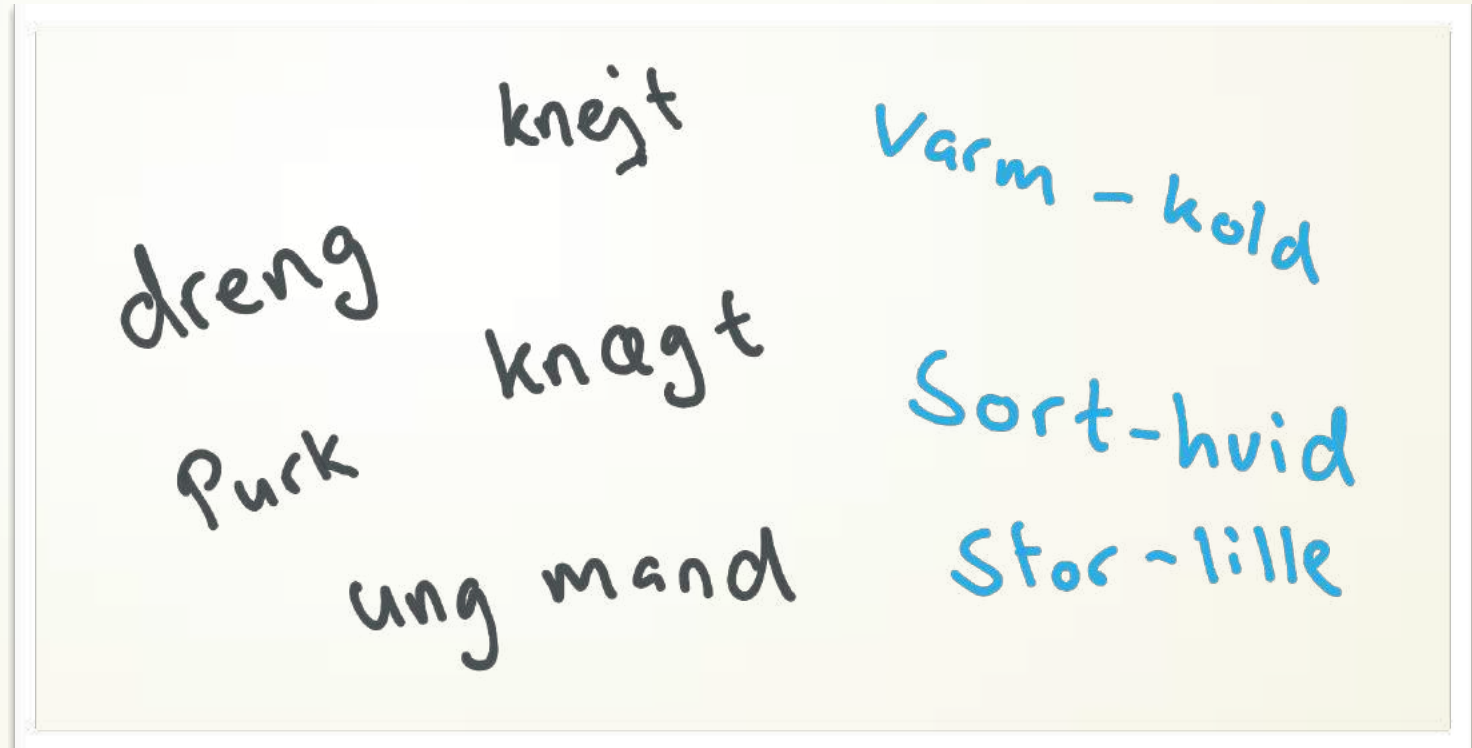 knejt
dreng
knægt
Purk
ung mand
Varm - kold
Sort-hvid
Stor-lille